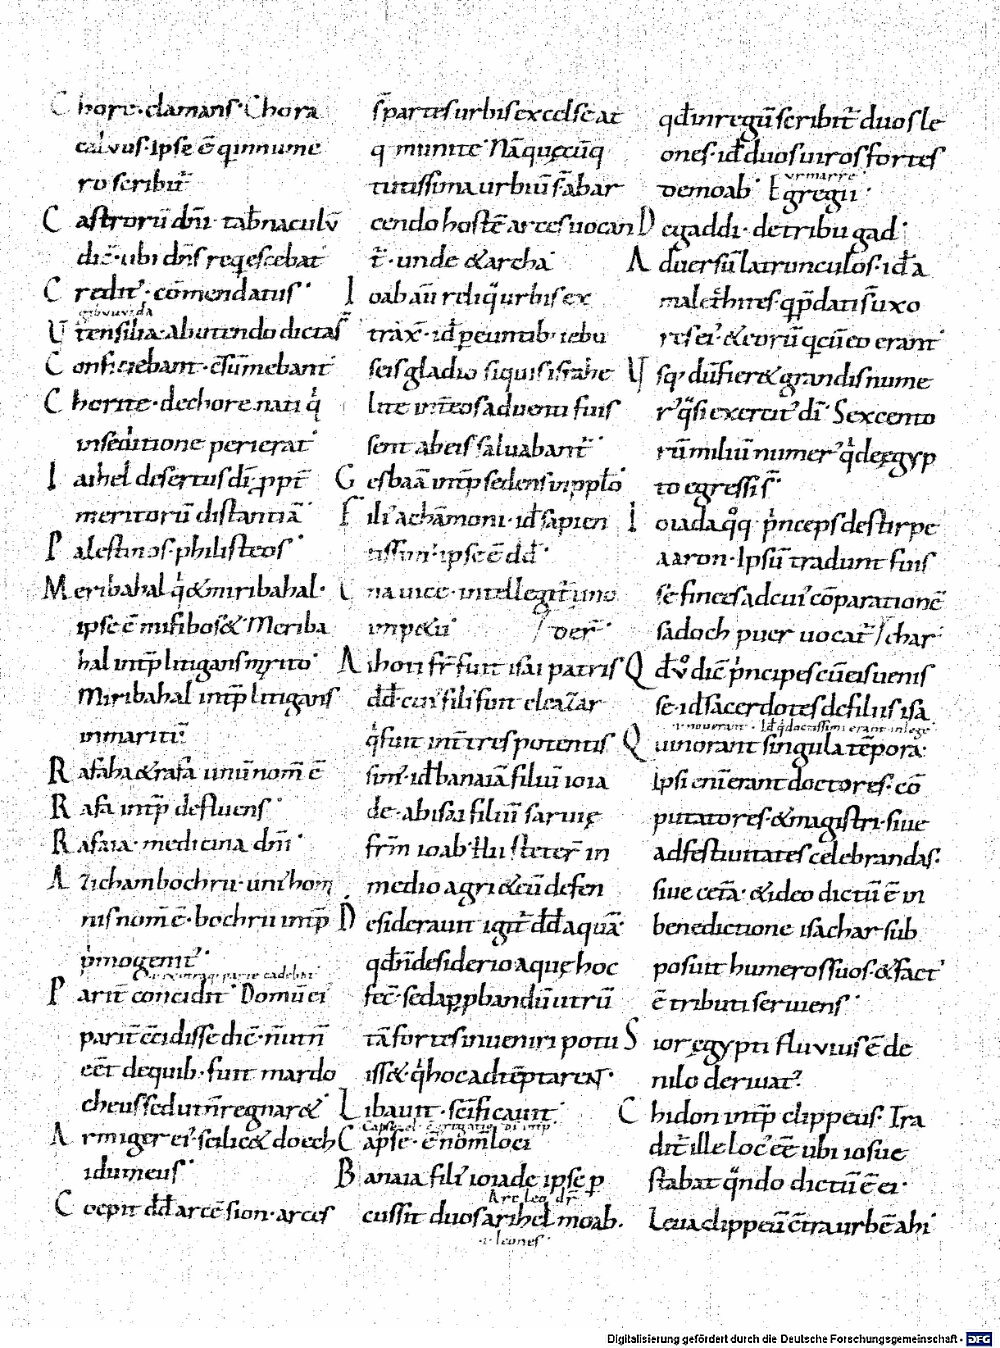 Chore · clamans · Chora
calvus · Ipse ē qui innume
ro scribit᷑
Castrorū dn̄i · tab̄naculū
dic̄ · ubi dn̄s reqescebat
Credit᷑ · cōmendatus ·
Vtensilia · abutendo dictas̄
Conficiebant · c̄sūmebant
Chorite · de chore nati q̇
in seditione perierat
Iaihel desertus dī ꝓpt̄
meritorū distantiā
Palestinos · philisteos ·
Meribahal q̇ & miribahal ·
ipse ē mifibos& · Meriba
hal int̄p litigans
Miribahal int̄p litigans
in maritiē
Rafaha & rafa unū nom̄ ē
Rafa int̄p defluens ·
Rafaia · medicina dn̄i
Azricham bochru · uni hom
nis nom̄ ē · bochru int̄p
p̄mogenit᷒ ·
Parit̄ concidit · Domū ei
parit̄ c̄cidisse dic̄ · n̄
eēt de quib · sunt mardo
cheus sed ut n̄ regnar&
Armiger ei᷒ · scilic& doech
idumeus ·
Coepit dd̄ arcē sion · arces
s̄ partes urbis excelse at
q munite · Nā quęcūq
tutissima urbiū s̄ ab ar
cendo hostē arces uocan
t̄ · unde & archa
Ioab aū reliq̇ urbis ex
trax̄ · id̄ peuntib iebu
seis gladio siquis israhe
lite int̄ eos aduenti fuis
sent ab eis saluabant᷑ ·
Gesbaā int̄p sedens
Fili᷒ achāmoni · id̄ sapien
tissim᷒ · ipse ē dd̄
Una uice · intellegit᷑ uno
imp&u
Aihoti fr̄ fuit isai patris
dd̄ · cui᷒ filī fuit eleazar
q̇ fuit int̄ tres potentis
sim᷒ · id̄ banaiā filiū ioia
de · abisai filiū saruię
fr̄m ioab · steter̄ in
medio agri & eū defen
der̄
Desiderauit igit᷑ dd̄ aquā
qd̄ n̄ desiderio aquę hoc
fec̄ · sed ad ꝓbandū utrū
tā fortes inueniri potu
iss& q̇ hoc adtēptarent ·
Libauit · sc̄ificauit ·
Capse · ē nom̄ loci
Banaia fili᷒ ioiade ipse p
cussit duos arihel moab ·
· i · leones ·
qd̄ in regū scribit᷑ duos le
ones · id̄ duos uiros fortes
de moab · egregii ·
De gaddi · de tribu gad ·
Aduersū latrunculos · id̄ a
malechites · q p̄dati s̄ uxo
res ei᷒ · & eorū q cū eo erant
Vsq dū fier& grandis nume
r᷒ q̄si exercit᷒ dī · Sexcento
rū miliū numer᷒ q̇ de ęgyp
to egressi s̄ ·
Ioiada qͦq p̄nceps de stirpe
aaron · Ipsū tradunt fuis
se finees ad cui᷒ cōparationē
sadoch puer uocat᷑
Qd̄ dic̄ p̄ncipes cū eis uenis
se · id̄ sacerdotes de filiis isa
char
Qui norant singula tēpora ·
Ipsi enī erant doctores · cō
putatores · & magistri · siue
ad festiuitates celebrandas ·
siue cet̄a · & ideo dictū ē in
benedictione isachar sub
posuit humeros suos & fact᷒
ē tributi seruiens ·
Sior ęgypti fluuius ē de
nilo deriuat᷒ ·
Chidon int̄p clippeus · Tra
dit᷑ ille loc᷒ eē ubi iosue
stabat q̄ndo dictū ē ei ·
Leua clippeū c̄tra urbē ahi